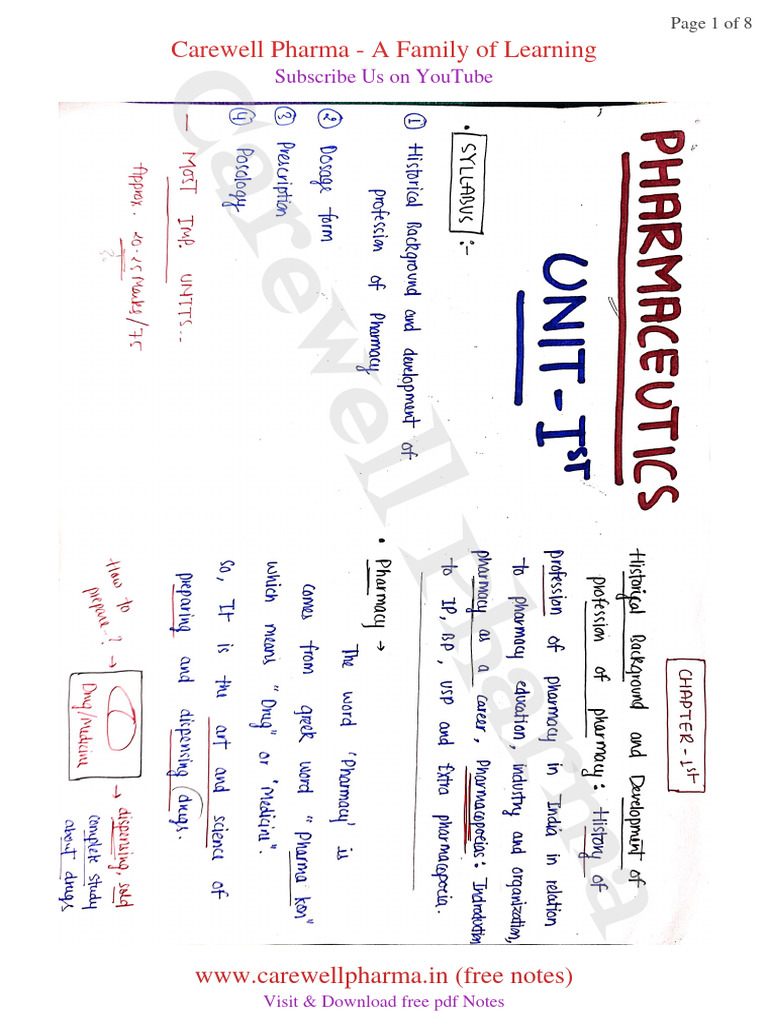 Page 1 of 8
Carewell Pharma - A Family of Learning
Subscribe Us on YouTube
PHARMACEUTICS
UNIT-IST
• SYLLABUS :-
① Historical Background and development of
profession of Pharmacy
② Dosage form
③ Prescription
④ Posology
– MOST IMP. UNITS...
Approx. 20-25 Marks/75
CHAPTER-1st
Historical Background and Development of
profession of pharmacy: History of
profession of pharmacy in India in relation
to pharmacy education, industry and organization,
pharmacy as a career, Pharmacopoeias: Indroduction
to IP, BP, USP and Extra pharmacopocia.
• Pharmacy →
The word 'Pharmacy' is
comes from greek word "Pharmakon"
which means "Drug" or "Medicine".
So, It is the art and science of
preparing and dispensing drugs.
How to
prepare-? →
Drug/Medicine
→ dispensing, sold
complete study
about drugs
Carewell Pharma
www.carewellpharma.in (free notes)
Visit & Download free pdf Notes